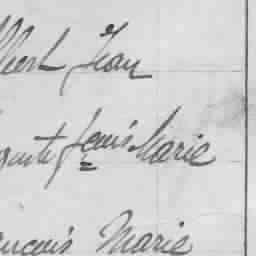 lbert Jean
guste Louis Marie
ançois Marie